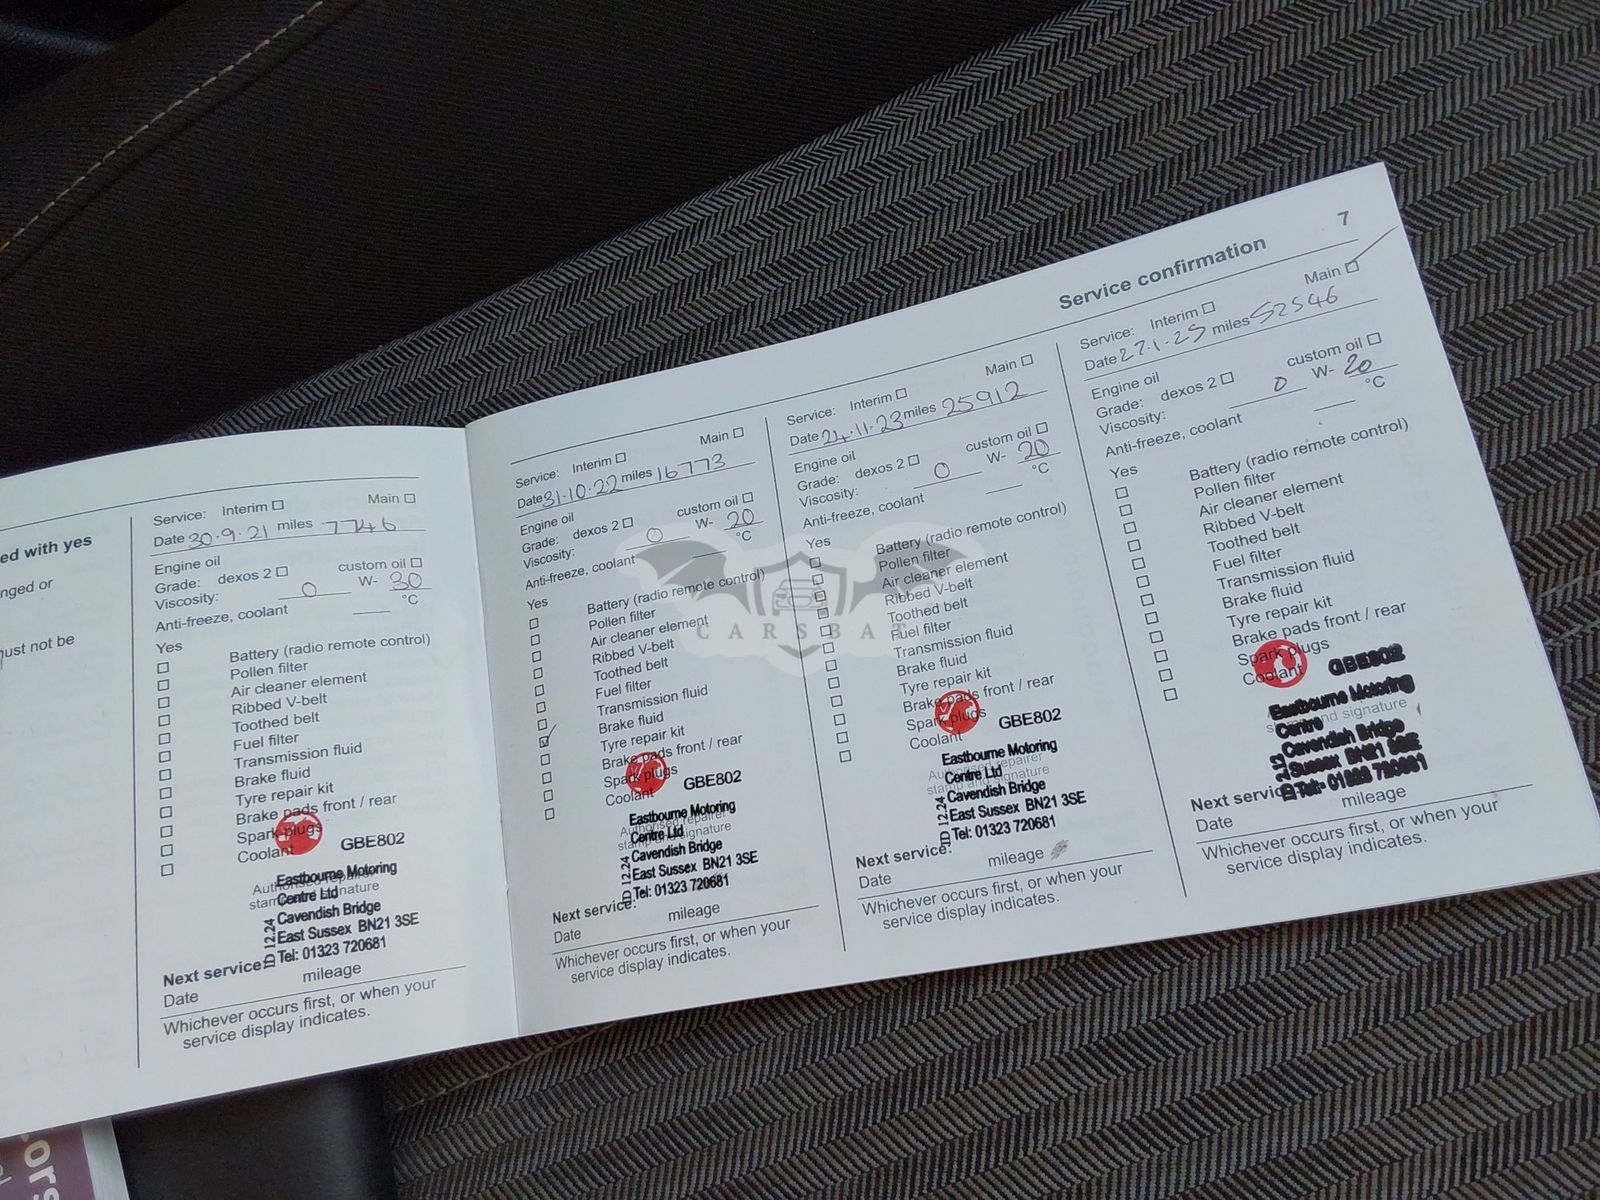 ed with yes
nged or
ust not be
Service: Interim ☐ Main ☐
Date 30·9·21 miles 7746
Engine oil
Grade: dexos 2 ☐ custom oil ☐
Viscosity: 0 W- 30
Anti-freeze, coolant °C
Yes
☐ Battery (radio remote control)
☐ Pollen filter
☐ Air cleaner element
☐ Ribbed V-belt
☐ Toothed belt
☐ Fuel filter
☐ Transmission fluid
☐ Brake fluid
☐ Tyre repair kit
☐ Brake pads front / rear
☐ Spark plugs
☐ Coolant
GBE802
Authorised repairer
stamp and signature
Eastbourne Motoring
Centre Ltd
Cavendish Bridge
East Sussex BN21 3SE
Tel: 01323 720681
ID 12.24
Next service:
Date mileage
Whichever occurs first, or when your
service display indicates.
Service: Interim ☐ Main ☐
Date 31·10·22 miles 16773
Engine oil
Grade: dexos 2 ☐ custom oil ☐
Viscosity: 0 W- 20
Anti-freeze, coolant °C
Yes
☐ Battery (radio remote control)
☐ Pollen filter
☐ Air cleaner element
☐ Ribbed V-belt
☐ Toothed belt
☐ Fuel filter
☐ Transmission fluid
☑ Brake fluid
☐ Tyre repair kit
☐ Brake pads front / rear
☐ Spark plugs
☐ Coolant
GBE802
Authorised repairer
stamp and signature
Eastbourne Motoring
Centre Ltd
Cavendish Bridge
East Sussex BN21 3SE
Tel: 01323 720681
ID 12.24
Next service:
Date mileage
Whichever occurs first, or when your
service display indicates.
Service: Interim ☐ Main ☐
Date 24·11·23 miles 25912
Engine oil
Grade: dexos 2 ☐ custom oil ☐
Viscosity: 0 W- 20
Anti-freeze, coolant °C
Yes
☐ Battery (radio remote control)
☐ Pollen filter
☐ Air cleaner element
☐ Ribbed V-belt
☐ Toothed belt
☐ Fuel filter
☐ Transmission fluid
☐ Brake fluid
☐ Tyre repair kit
☐ Brake pads front / rear
☐ Spark plugs
☐ Coolant
GBE802
Authorised repairer
stamp and signature
Eastbourne Motoring
Centre Ltd
Cavendish Bridge
East Sussex BN21 3SE
Tel: 01323 720681
ID 12.24
Next service:
Date mileage
Whichever occurs first, or when your
service display indicates.
Service confirmation 7
Service: Interim ☐ Main ☑
Date 27·1·25 miles 52546
Engine oil
Grade: dexos 2 ☐ custom oil ☐
Viscosity: 0 W- 20
Anti-freeze, coolant °C
Yes
☐ Battery (radio remote control)
☐ Pollen filter
☐ Air cleaner element
☐ Ribbed V-belt
☐ Toothed belt
☐ Fuel filter
☐ Transmission fluid
☐ Brake fluid
☐ Tyre repair kit
☐ Brake pads front / rear
☐ Spark plugs
☐ Coolant
GBE802
stamp and signature
Eastbourne Motoring
Centre
Cavendish Bridge
Sussex BN21
Next service
Date mileage
Whichever occurs first, or when your
service display indicates.
CARSBAT